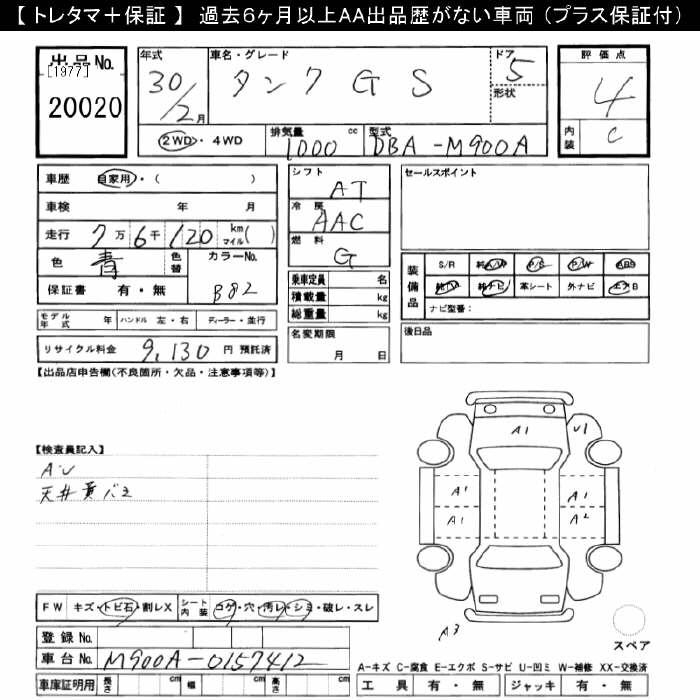 【トレタマ＋保証】 過去6ヶ月以上AA出品歴がない車両（プラス保証付）
出品No.
[1977]
20020
年式
30/2月
車名・グレード
タンク G S
ドア
5
形状
評価点
4
内装
C
2WD・4WD
排気量
1000 cc
型式
DBA-M900A
車歴 自家用・( )
車検 年 月
走行 7万6千120 km マイル( )
色 青 色替
カラーNo.
B82
保証書 有・無
モデル年式 年 ハンドル 左・右 ディーラー・並行
リサイクル料金 9,130 円 預託済
シフト
AT
冷房
AAC
燃料
G
乗車定員 名
積載量 kg
総重量 kg
名変期限
月 日
セールスポイント
装備品
S/R 純A/W P/S P/W ABS
純TV 純ナビ 革シート 外ナビ エアB
ナビ型番：
後日品
【出品店申告欄(不良箇所・欠品・注意事項等)】
【検査員記入】
A・U
天井黄バミ
A1
U1
A1
A1
A1
A2
A3
スペア
FW キズ・トビ石・割レX
シート内装 コゲ・穴・汚レ・シミ・破レ・スレ
登録No.
車台No. M900A-0157412
車庫証明用 長さ cm 幅 cm 高さ cm
A-キズ C-腐食 E-エクボ S-サビ U-凹ミ W-補修 XX-交換済
工具 有・無 ジャッキ 有・無